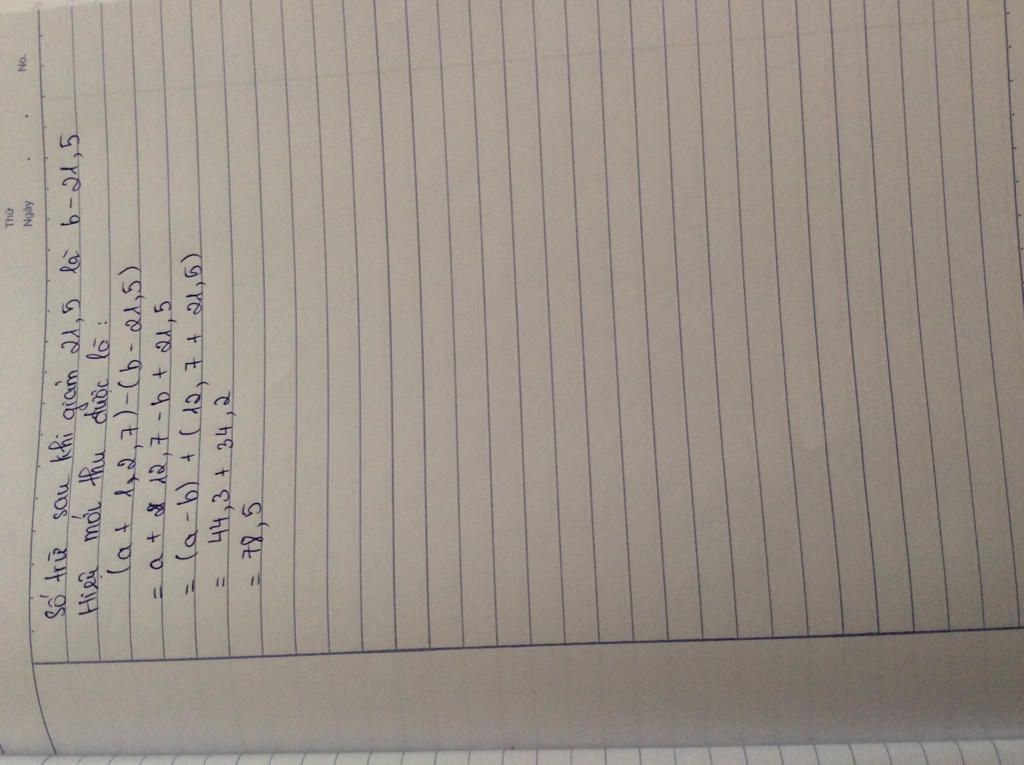 Thứ
Ngày
No.
Số trừ sau khi giảm 21,5 là b - 21,5
Hiệu mới thu được là:
(a + 1,2,7) - (b - 21,5)
= a + 12,7 - b + 21,5
= (a - b) + (12,7 + 21,5)
= 44,3 + 34,2
= 78,5